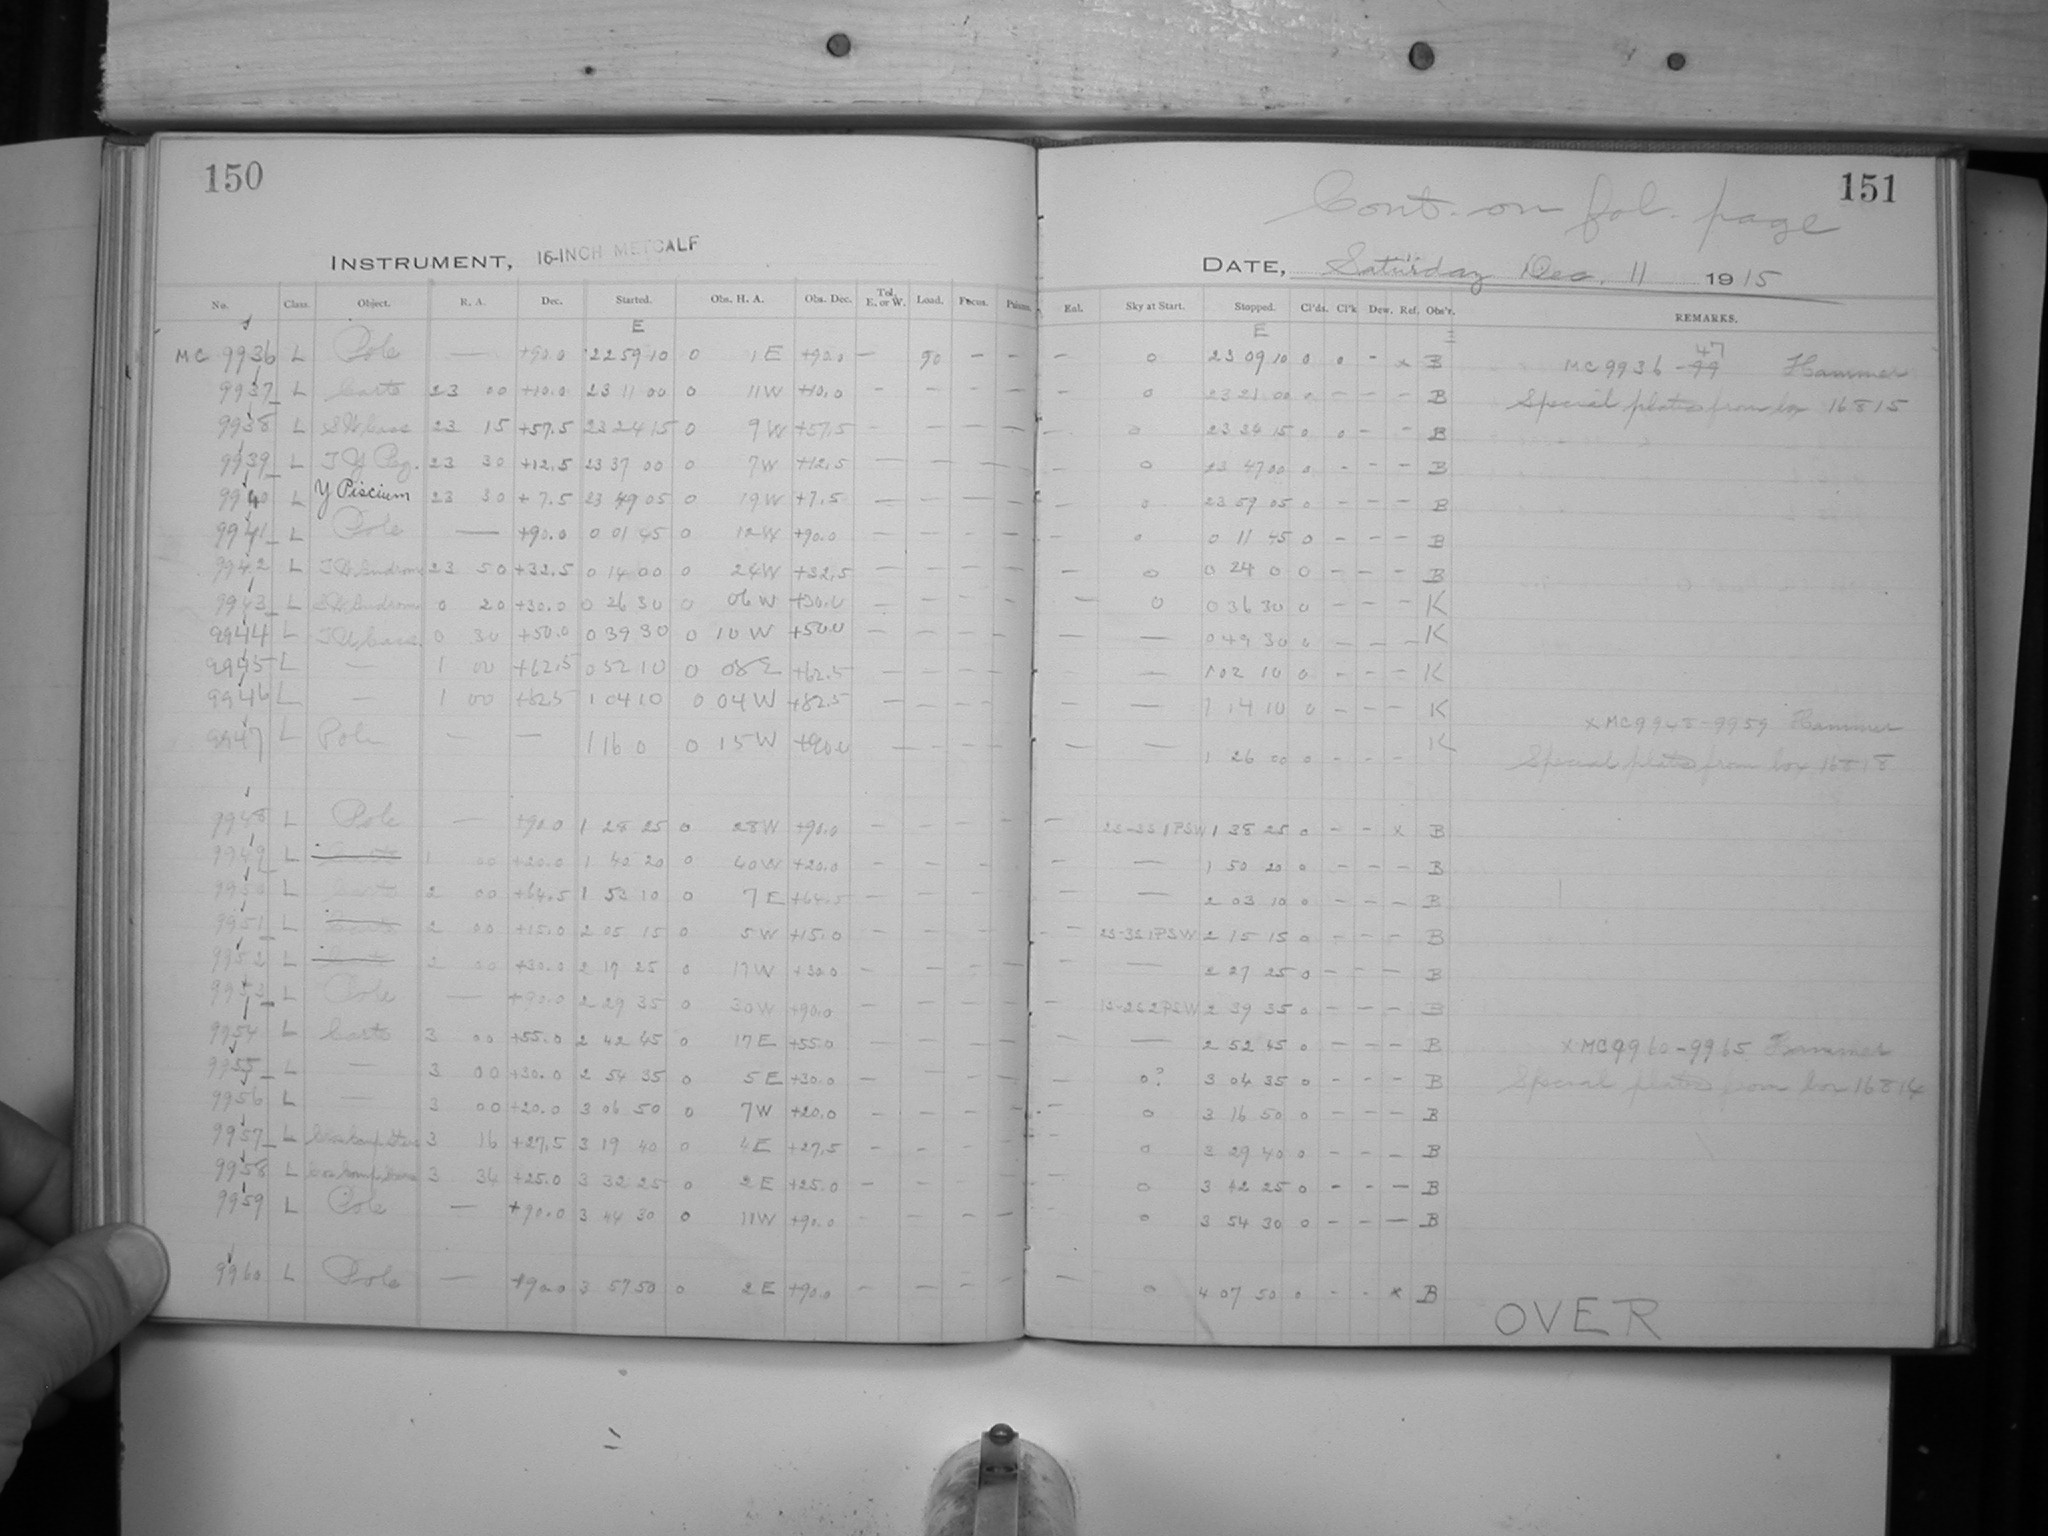 150
INSTRUMENT, 16-INCH METCALF
No. Class. Object. R. A. Dec. Started. Obs. H. A. Obs. Dec. Tel. E. or W. Load. Focus. Prisms.
E
MC 9936 L Pole — +90.0 22 59 10 0 1 E +90.0 — 90 — —
9937 L Carte 23 00 +10.0 23 11 00 0 11 W +10.0 — — — —
9938 L 23 15 +57.5 23 24 15 0 9 W +57.5 — — — —
9939 L Peg. 23 30 +12.5 23 37 00 0 7 W +12.5 — — — —
9940 L Y Piscium 23 30 + 7.5 23 49 05 0 19 W +7.5 — — — —
9941 L Pole — +90.0 0 01 45 0 12 W +90.0 — — — —
9942 L 23 50 +32.5 0 14 00 0 24 W +32.5 — — — —
9943 L 0 20 +30.0 0 26 30 0 06 W +30.0 — — — —
9944 L 0 30 +50.0 0 39 30 0 10 W +50.0 — — — —
9945 L — 1 00 +62.5 0 52 10 0 08 E +62.5 — — — —
9946 L — 1 00 +82.5 1 04 10 0 04 W +82.5 — — — —
9947 L Pole — — 1 16 0 0 15 W +90.0 — — — —
9948 L Pole — +90.0 1 28 25 0 28 W +90.0 — — — —
9949 L 1 00 +20.0 1 40 20 0 40 W +20.0 — — — —
9950 L Carte 2 00 +64.5 1 53 10 0 7 E +64.5 — — — —
9951 L Carte 2 00 +15.0 2 05 15 0 5 W +15.0 — — — —
9952 L 2 00 +30.0 2 17 25 0 17 W +30.0 — — — —
9953 L Pole — +90.0 2 29 35 0 30 W +90.0 — — — —
9954 L Carte 3 00 +55.0 2 42 45 0 17 E +55.0 — — — —
9955 L — 3 00 +30.0 2 54 35 0 5 E +30.0 — — — —
9956 L — 3 00 +20.0 3 06 50 0 7 W +20.0 — — — —
9957 L 3 16 +27.5 3 19 40 0 4 E +27.5 — — — —
9958 L 3 34 +25.0 3 32 25 0 2 E +25.0 — — — —
9959 L Pole — +90.0 3 44 30 0 11 W +90.0 — — — —
9960 L Pole — +90.0 3 57 50 0 2 E +90.0 — — — —
151
Cont. on fol. page
DATE, Saturday Dec. 11 1915
Eal. Sky at Start. Stopped. Cl'ds. Cl'k Dew. Ref. Obs'r. REMARKS.
E
— 0 23 09 10 0 0 - x B MC 9936-99 47 Hammer
— 0 23 21 00 0 — — — B Special plates from box 16815
— 0 23 34 15 0 0 — — B
— 0 23 47 00 0 — — — B
— 0 23 59 05 0 — — — B
— 0 0 11 45 0 — — — B
— 0 0 24 0 0 — — — B
— 0 0 36 30 0 — — — K
— — 0 49 30 0 — — — K
— — 1 02 10 0 — — — K
— — 1 14 10 0 — — — K
x MC 9948-9959 Hammer
— — 1 26 00 0 — — — K Special plates from box 16818
— 1 38 25 0 — — x B
— — 1 50 20 0 — — — B
— — 2 03 10 0 — — — B
— 2 15 15 0 — — — B
— — 2 27 25 0 — — — B
— 2 39 35 0 — — — B
— — 2 52 45 0 — — — B x MC 9960-9965 Hammer
— 0? 3 04 35 0 — — — B Special plates from box 16814
— 0 3 16 50 0 — — — B
— 0 3 29 40 0 — — — B
— 0 3 42 25 0 — — — B
— 0 3 54 30 0 — — — B
— 0 4 07 50 0 — — x B
OVER